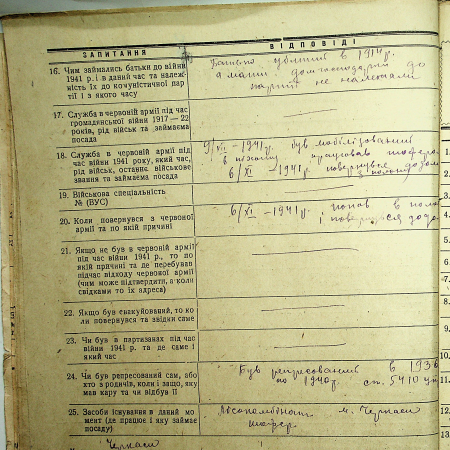 ЗАПИТАННЯ
ВІДПОВІДІ
16. Чим займались батьки до війни
1941 р. і в даний час та належ-
ність їх до комуністичної пар-
тії і з якого часу
Батько убитий в 1914 р.
а мати домогосподарка до
партії не належали
17. Служба в червоній армії під час
громадянської війни 1917—22
років, рід військ та займаєма
посада
18. Служба в червоній армії під
час війни 1941 року, який час,
рід військ, останнє військове
звання та займаєма посада
9/VII —1941 р. був мобілізований
в працював шофером
6/XI —1941 р. повернувся додому
з полону
19. Військова спеціальність
№ (ВУС)
20. Коли повернувся з червоної
армії та по якій причині
6/XI —1941 р. попав в поло
і повернувся додо
21. Якщо не був в червоній армії
під час війни 1941 р., то по
якій причині та де перебував
підчас відходу червоної армії
(чим може підтвердити, а коли
свідками то їх адреса)
22. Якщо був евакуйований, то ко
ли повернувся та звідки саме
23. Чи був в партизанах під час
війни 1941 р. та де саме і
який час
24. Чи був репресований сам, або
хто з родичів, коли і защо, яку
мав кару та чи відбув її
Був репресований в 1938
по 1940 р. ст. 54 10
25. Засоби існування в даний мо
мент (де працює і яку займає
посаду)
м. Черкаси
шофер.
Черкаси
12.
13.